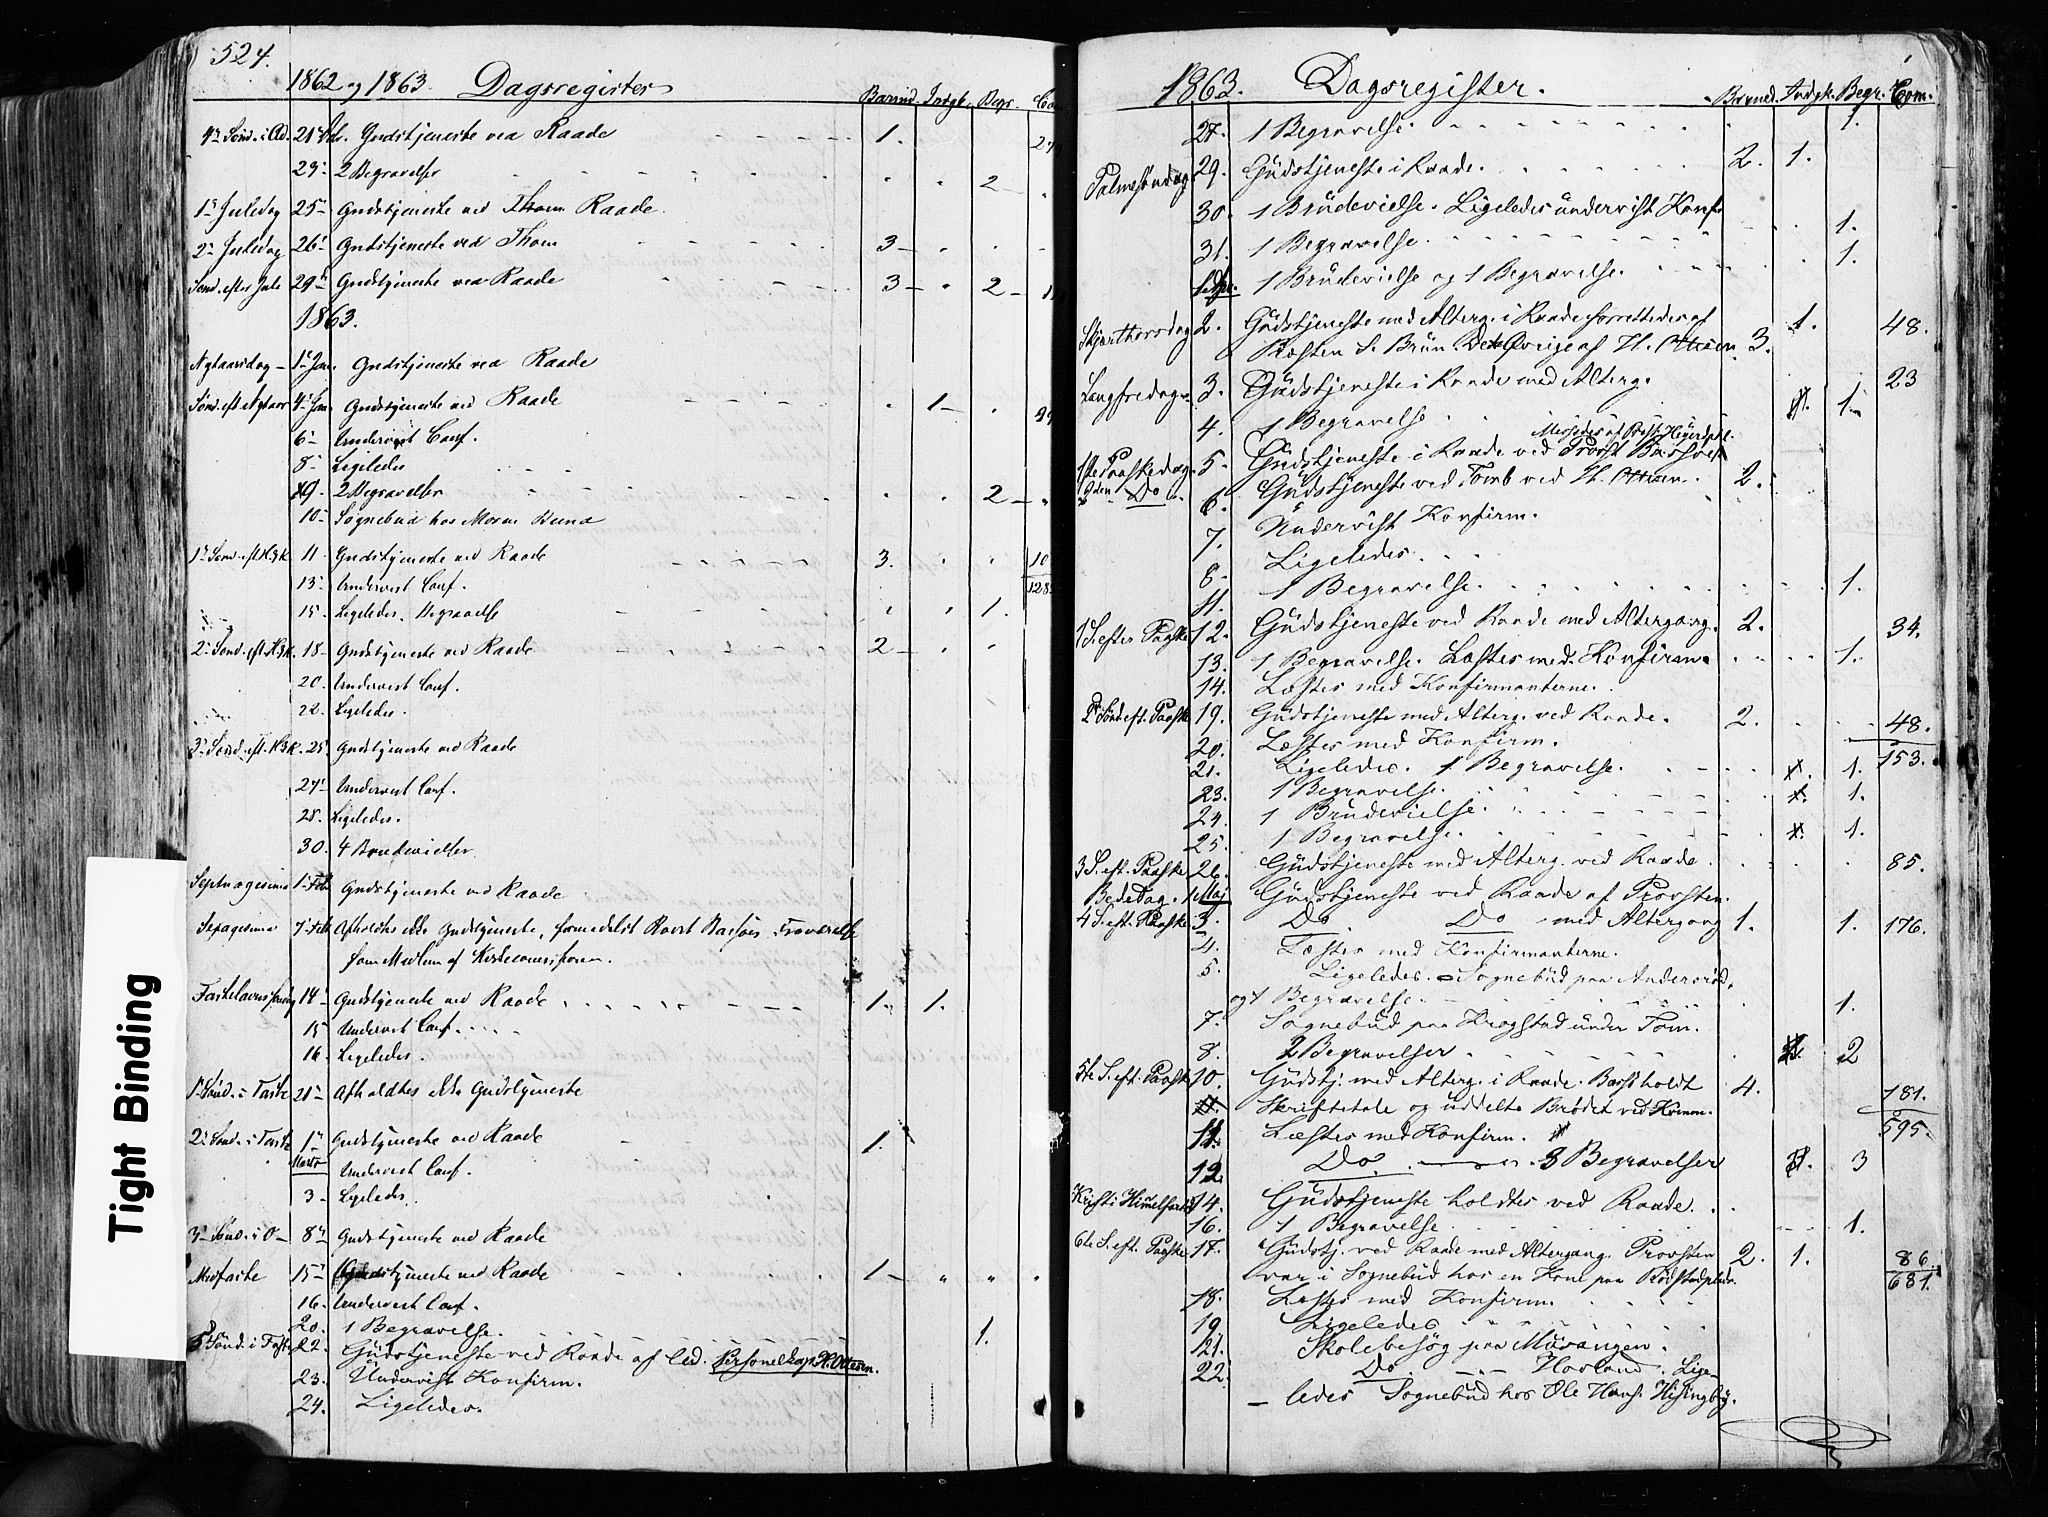 524.
1862 og 1863. Dagsregister
Barnd. Indgt. Begr. Com
4de Sønd. i Ad. 21 Gudstjeneste ved Raade 1.
23 2 Begravelser 2
1ste Juledag 25 Gudstjeneste ved Raade.
2den Juledag 26 Gudstjeneste ved Thom 3
Sønd. efter Jule 29 Gudstjeneste ved Raade 3 2
1863.
Nytaarsdag 1 Jan. Gudstjeneste ved Raade
Sønd. eft Nytaar 4 Jan. Gudstjeneste ved Raade 1
6 Undervist Conf.
8 Ligeledes
9. 2 Begravelser 2
10 Sognebud hos
1 Sønd. eft. H3K 11 Gudstjeneste ved Raade 3. 10
13 Undervist Conf. 128
15 Ligeledes. Begravelse 1.
2 Sønd. eft. H3K. 18 Gudstjeneste ved Raade 2
20. Undervist Conf.
22. Ligeledes.
3 Sønd. eft. H3K. 25 Gudstjeneste ved Raade
27 Undervist Conf.
28. Ligeledes.
30. 4 Brudevielser
Septuagesima 1 Feb Gudstjeneste ved Raade
Sexagesima 7 Feb Afholdtes ikke Gudstjeneste, formedelst Provst Fraværelse
som Medlem af
14 Gudstjeneste ved Raade 1. 1.
15 Undervist Conf.
16. Ligeledes.
1 Sønd. i Faste 21 Afholdtes ikke Gudstjeneste
2 Sønd. i Faste 1 Gudstjeneste ved Raade 1.
Marts Undervist Conf.
3 Ligeledes.
3 Sønd. i D 8 Gudstjeneste ved Raade
Midfaste 15 Gudstjeneste ved Raade 1
16. Undervist Conf.
20. 1 Begravelse. 1.
5 Sønd. i Faste 22. Gudstjeneste ved Raade af Cd. Personelkap H. Ottesen.
23. Undervist Konfirm.
24. Ligeledes.
1863. Dagsregister.
Barned. Indgk. Begr. Com.
27. 1 Begravelse. 1.
Palmesøndag 29. Gudstjeneste i Raade. 2. 1.
30. 1 Brudevielse. Ligeledes undervist Konf.
31. 1 Begravelse. 1.
1 Apr. 1 Brudevielse og 1 Begravelse. 1.
Skjærthorsdag 2. Gudstjeneste med Alterg. i Raade forrettedes af 1. 48.
Præsten S. Brun. Det Øvrige af H. Ottesen 3.
Langfredag 3. Gudstjeneste i Raade med Alterg. 23
4. 1 Begravelse 1.
Messedes af
1ste Paaskedag 5. Gudstjeneste i Raade ved Provst
2den Do 6. Gudstjeneste ved Tomb ved H. Ottesen. 2.
7. Undervist Konfirm.
8. Ligeledes.
11. 1 Begravelse. 1.
1 S. efter Paaske 12. Gudstjeneste ved Raade med Altergang. 2. 34.
13. 1 Begravelse. Læstes med Konfirm. 1.
14. Læstes med Konfirmanterne.
2 Sønd eft. Paaske 19. Gudstjeneste med Alterg. ved Raade. 2. 48.
20. Læstes med Konfirm. 153.
21. Ligeledes. 1 Begravelse. 1.
23. 1 Begravelse. 1.
24. 1 Brudevielse.
25. 1 Begravelse. 1.
3 S. eft. Paaske 26. Gudstjeneste med Alterg. ved Raade. 85.
BedeDag. 1 Maj Gudstjeneste ved Raade af Provsten.
4 S. eft. Paaske 3. Do. Do med Altergang 1. 1. 176.
4. Læstes med Konfirmanterne.
5. Ligeledes. Sognebud paa Andersrød.
og 1 Begravelse. 1.
7. Sognebud paa Krogstad under Tom.
8. 2 Begravelser 2
5te S. eft. Paaske 10. Gudstj. med Alterg. i Raade. holdt 4. 181.
Skriftetale og uddelte Brødet ved Komm. 595.
11. Læstes med Konfirm.
12. Do. 3 Begravelser 3
Kristi Himelfart 14. Gudstjeneste holdtes ved Raade.
16. 1 Begravelse. 1.
6te S. eft. Paaske 17. Gudstj. ved Raade med Altergang. Provsten 2. 1. 86.
var i Sognebud hos en Kone paa 681.
18. Læstes med Konfirm.
19. Ligeledes
21. Skolebesøg paa
22. Do Hovland. Lige-
ledes Sognebud hos Ole Hans. Hisingby.
Tight Binding